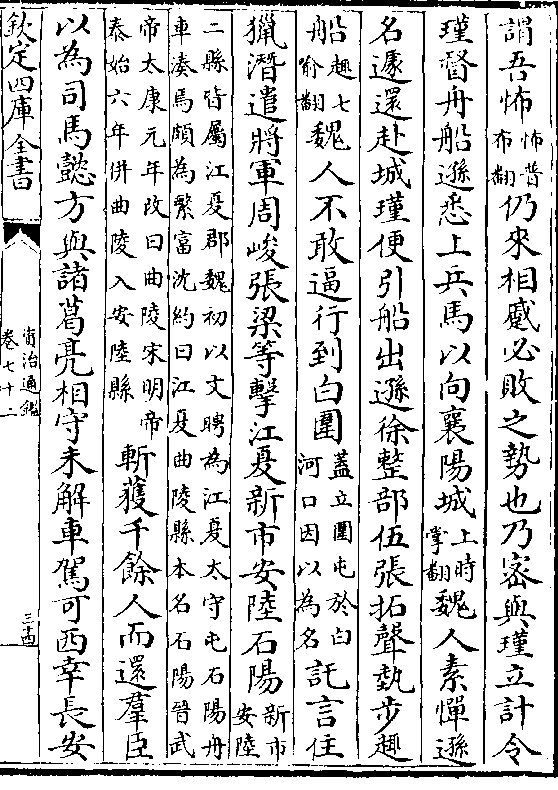 謂吾怖怖普布翻仍來相蹙必敗之勢也乃密與瑾立計令
瑾督舟船遜悉上兵馬以向襄陽城上時掌翻魏人素憚遜
名遽還赴城瑾便引船出遜徐整部伍張拓聲埶步趣
船趣七喻翻魏人不敢逼行到白圍蓋立圍屯於白河口因以為名託言住
獵潛遣將軍周峻張梁等擊江夏新市安陸石陽新市安陸
二縣皆屬江夏郡魏初以文聘為江夏太守屯石陽舟車湊焉頗為繁富沈約曰江夏曲陵縣本名石陽晉武
帝太康元年改曰曲陵宋明帝泰始六年併曲陵入安陸縣斬獲千餘人而還羣臣
以為司馬懿方與諸葛亮相守未解車駕可西幸長安
欽定四庫全書
資治通鑑
卷七十二
三十四